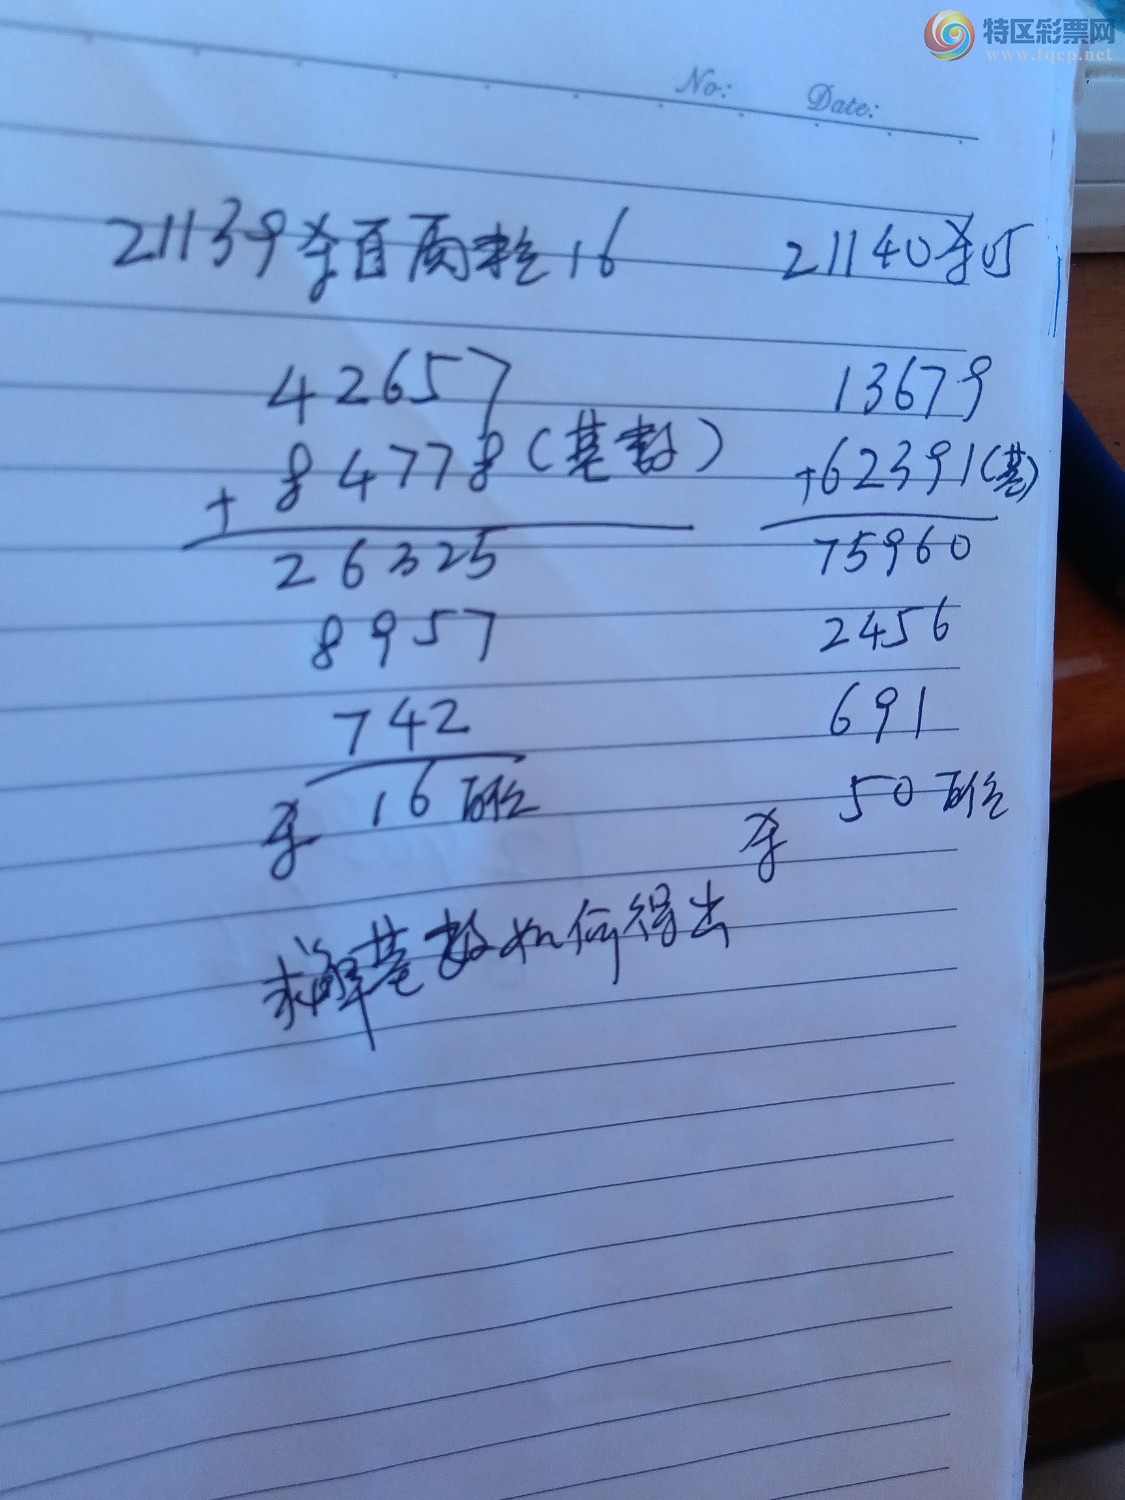 特区彩票网
www.tqcp.net
No: Date:
21139杀百两粒16
21140杀05
42657
+ 84778(基数)
26325
8957
742
杀 16百位
13679
+62391(基)
75960
2456
691
杀 50百位
求解基数如何得出